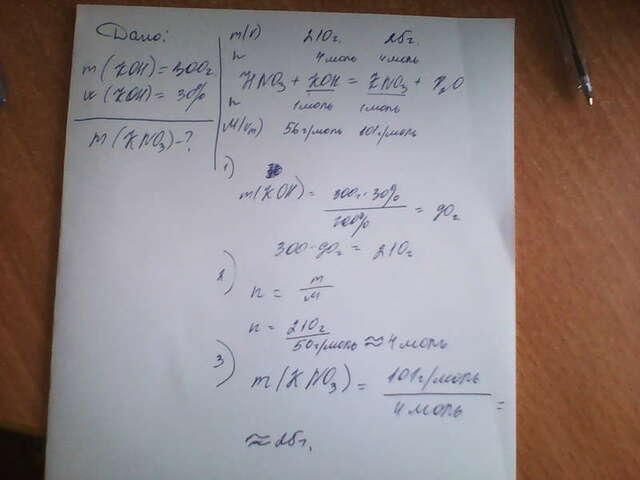 Дано:
m(KOH) = 300г.
w(KOH) = 30%
m(KNO₃)-?
m(v) 210г. 25г.
n 4моль 4моль
HNO₃ + KOH = KNO₃ + H₂O
n 1моль 1моль
M(Vm) 56г/моль 101г/моль
1)
m(KOH) = 300г·30% / 100% = 90г
300-90г = 210г
2)
n = m / M
n = 210г / 50г/моль ≈ 4моль
3)
m(KNO₃) = 101г/моль / 4моль =
≈ 25г.